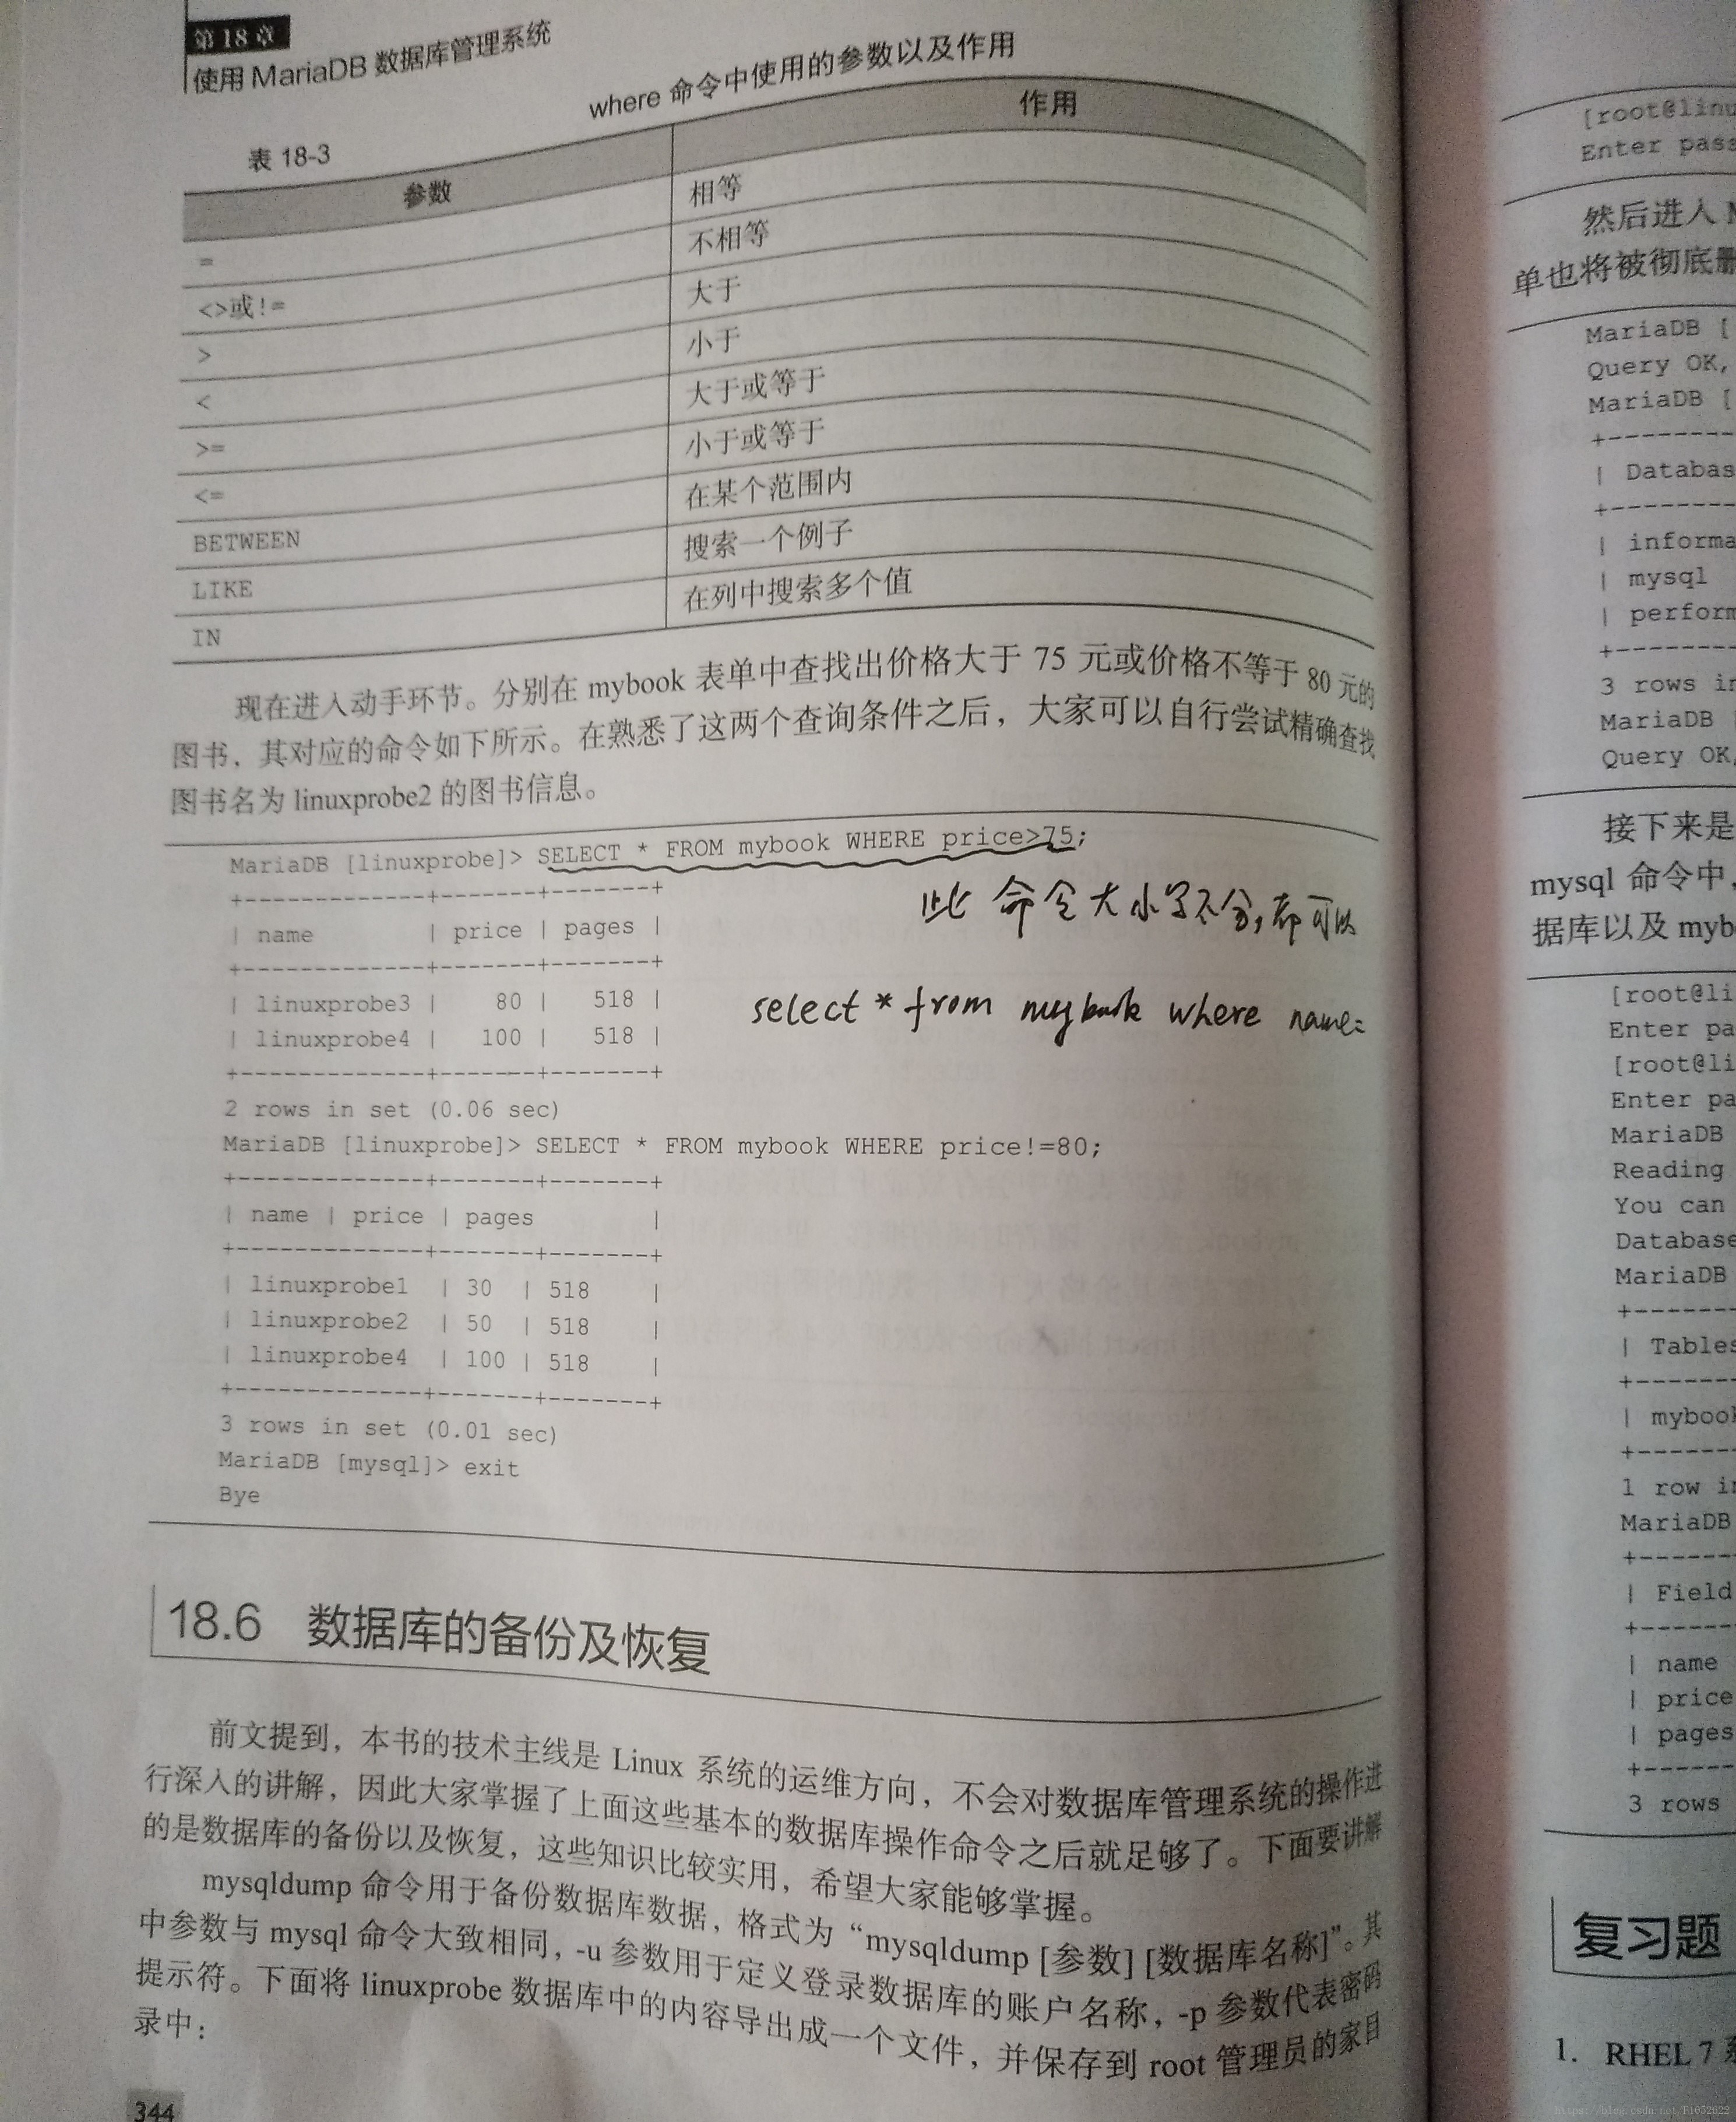 第18章
使用 MariaDB 数据库管理系统
表 18-3
where 命令中使用的参数以及作用
参数 作用
= 相等
<>或!= 不相等
> 大于
< 小于
>= 大于或等于
<= 小于或等于
BETWEEN 在某个范围内
LIKE 搜索一个例子
IN 在列中搜索多个值
现在进入动手环节。分别在 mybook 表单中查找出价格大于 75 元或价格不等于 80 元的
图书，其对应的命令如下所示。在熟悉了这两个查询条件之后，大家可以自行尝试精确查找
图书名为 linuxprobe2 的图书信息。
MariaDB [linuxprobe]> SELECT * FROM mybook WHERE price>75;
+-------------+-------+-------+
| name | price | pages |
+-------------+-------+-------+
| linuxprobe3 | 80 | 518 |
| linuxprobe4 | 100 | 518 |
+-------------+-------+-------+
此命令大小写不分,都可以
select * from mybook where name=
2 rows in set (0.06 sec)
MariaDB [linuxprobe]> SELECT * FROM mybook WHERE price!=80;
+-------------+-------+-------+
| name | price | pages |
+-------------+-------+-------+
| linuxprobe1 | 30 | 518 |
| linuxprobe2 | 50 | 518 |
| linuxprobe4 | 100 | 518 |
+-------------+-------+-------+
3 rows in set (0.01 sec)
MariaDB [mysql]> exit
Bye
18.6 数据库的备份及恢复
前文提到，本书的技术主线是 Linux 系统的运维方向，不会对数据库管理系统的操作进
行深入的讲解，因此大家掌握了上面这些基本的数据库操作命令之后就足够了。下面要讲解
的是数据库的备份以及恢复，这些知识比较实用，希望大家能够掌握。
mysqldump 命令用于备份数据库数据，格式为“mysqldump [参数] [数据库名称]”。其
中参数与 mysql 命令大致相同，-u 参数用于定义登录数据库的账户名称，-p 参数代表密码
提示符。下面将 linuxprobe 数据库中的内容导出成一个文件，并保存到 root 管理员的家目
录中：
344
[root@linu
Enter pass
然后进入
单也将被彻底删
MariaDB [
Query OK,
MariaDB [
+--------
| Databas
+--------
| informa
| mysql
| perform
+--------
3 rows in
MariaDB
Query OK,
接下来是
mysql 命令中，
据库以及 myb
[root@li
Enter pa
[root@li
Enter pa
MariaDB
Reading
You can
Database
MariaDB
+-------
| Tables
+-------
| mybook
+-------
1 row in
MariaDB
+-------
| Field
+-------
| name
| price
| pages
+-------
3 rows
复习题
1. RHEL 7 系